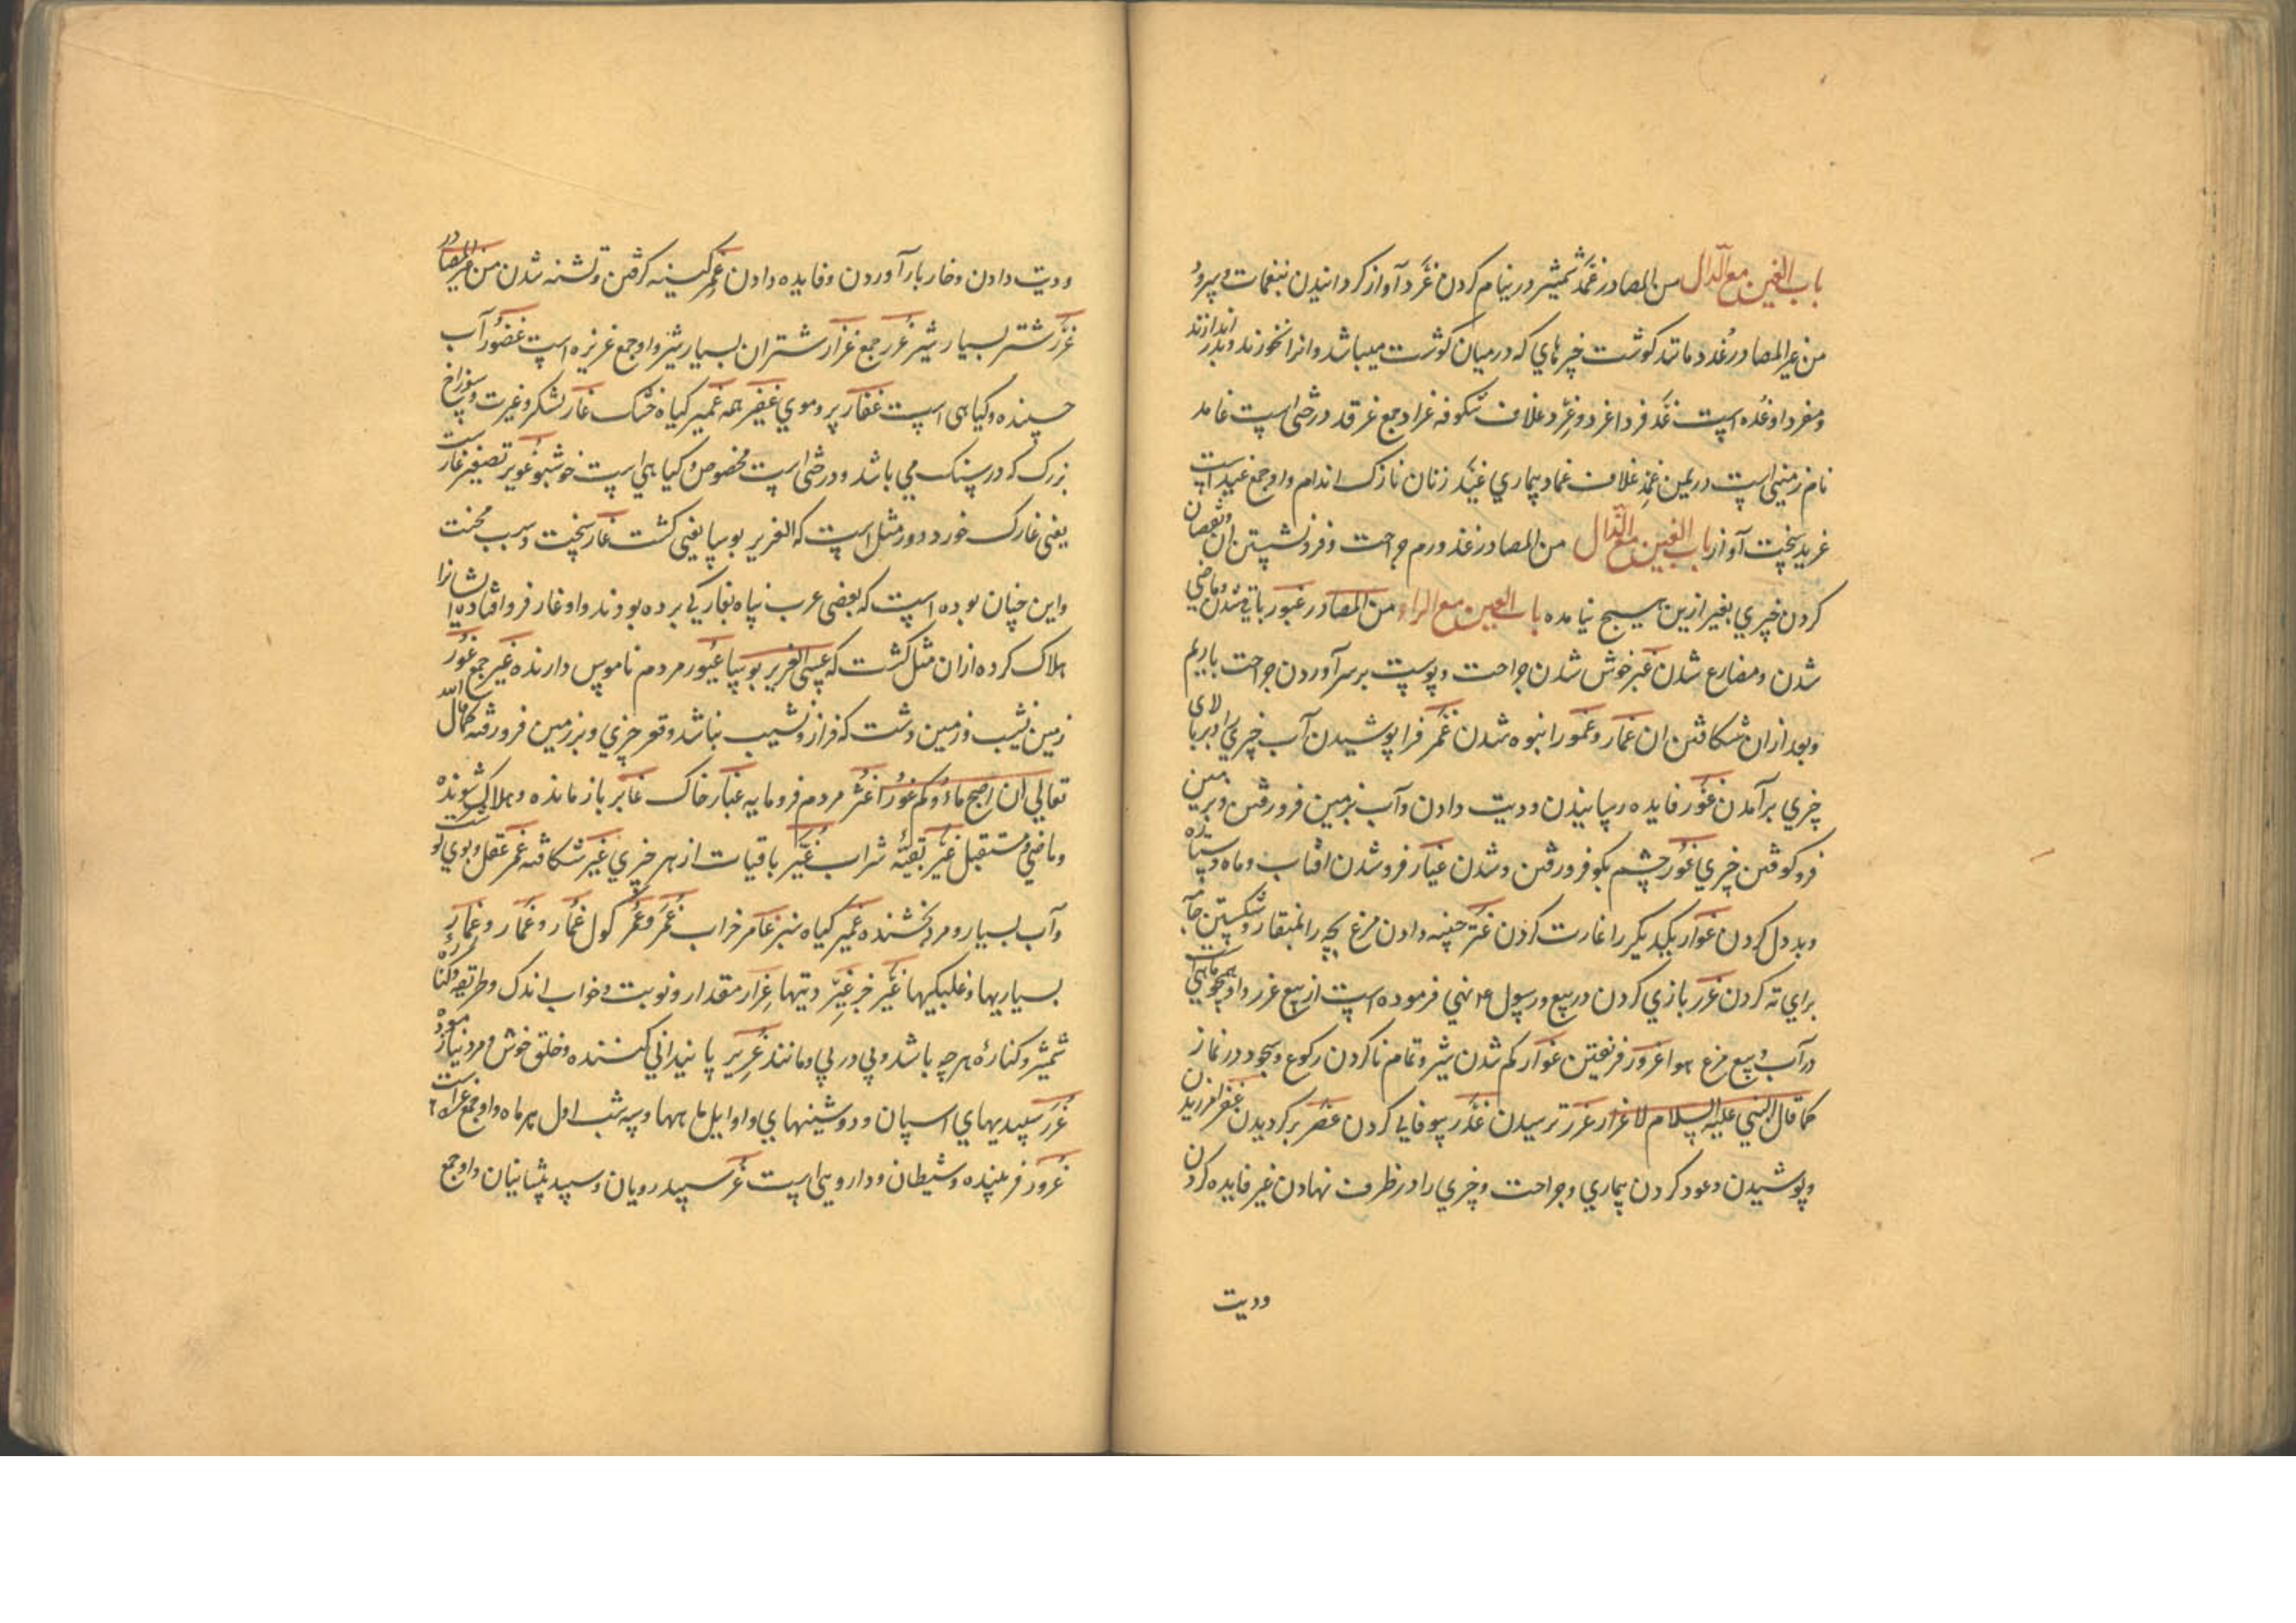 باب الغين مع الدال من المصادر غمد شمشير در نيام كردن غرد آواز كردانيدن بنغمات و سرود
من غير المصادر غدد مانند كوشت چيزهاي كه درميان كوشت ميباشد وانرا نخورند و بدر اندازند
ومفرد او غده است غد فردا غرد وغرد غلاف شكوفه غراد جمع غرقد درختى است غامد
نام زمينى است در يمن غمد غلاف غماد بيماري غيد زنان نازك اندام واو جمع غيداست
غريد سخت آواز باب الغين مع الذال من المصادر غذ ورم جراحت و فرونشستن ان و نقصان
كردن چيزي بغير ازين هيچ نيامده باب الغين مع الراء من المصادر غبور باقي شدن و ماضي
شدن و مضارع شدن غبر خوش شدن جراحت و پوست برسر آوردن جراحت باريم
وبعد ازان شكافتن ان غمار و غمور انبوه شدن غمر فرا پوشيدن آب چيزي را و بر بالاى
چيزي برآمدن غور فايده رسانيدن و ديت دادن وآب بزمين فرورفتن و بزمين
فروكوفتن چيزي غور چشم بكو فرورفتن و شدن غيار فروشدن افتاب و ماه و ستاره
وبد دل كردن غوار يكديكر را غارت كردن غر چينه دادن مرغ بچه را بمنقار و شكستن جامه
براي ته كردن غرر بازي كردن در بيع و رسول ع نهي فرموده است از بيع غرر واو همچو ماهيست
در آب و بيع مرغ هوا غرور فريفتن غوار كم شدن شير و تمام ناكردن ركوع و سجود در نماز
كما قال النبي عليه السلام لا غرار غرر ترسيدن غدر بيوفايي كردن غضر بركرديدن غفر امرزيدن
وپوشيدن وعود كردن بيماري و جراحت و چيزي را در ظرف نهادن غير فايده كردن
وديت
وديت دادن و خار بار آوردن و فايده دادن غمر كينه كرفتن و تشنه شدن من غير المصادر
غزر شتر بسيار شير غزر جمع غزار شتران بسيار شير واو جمع غزيره است غضور آب
چسپنده و كياهى است غفار پر و موي غفير همه غمير كياه خشك غار لشكر و غيرت و سوراخ
بزرك كه در سنك مي باشد و درختى است مخصوص و كياهي است خوشبو غوير تصغير غارست
يعنى غارك خورد و در مثل است كه الغوير بوسا يعنى كشت غار سخت و سبب محنت
واين چنان بوده است كه بعضى عرب پناه بغاركي برده بودند واو غار فروافتاده ايشانرا
هلاك كرده ازان مثل كشت كه عسى الغوير بوسا غيور مردم ناموس دارنده غير جمع غور
زمين نشيب و زمين دشت كه فراز و نشيب نباشد و قعر چيزي و بزمين فرورفته كما قال الله
تعالي ان اصبح ماؤكم غورا غثر مردم فرومايه غبار خاك غابر بازمانده و هلاك شونده
وماضي و مستقبل غبر بقيه شراب غبر باقيات از هر چيزي غير شكافته غمر عقل و بوي كوشت
وآب بسيار و مرد بخشنده غمير كياه سبز غامر خراب غمر و غمر كول غمار و غمار و غمار
بسياريها و غلبكيها غير جز غير ديتها غرار مقدار و نوبت و خواب اندك و طريقه و كناره
شمشير و كناره هرچه باشد و پي در پي و مانند غرير پايندانى كننده و خلق خوش و مرد نيازموده
غرر سپيديهاي اسپان و دوشينهاي و اوايل ماهها و سه شب اول هر ماه واو جمع غره است
غرور فريبنده و شيطان و داروى است غر سپيد رويان و سپيد پيشانيان واو جمع